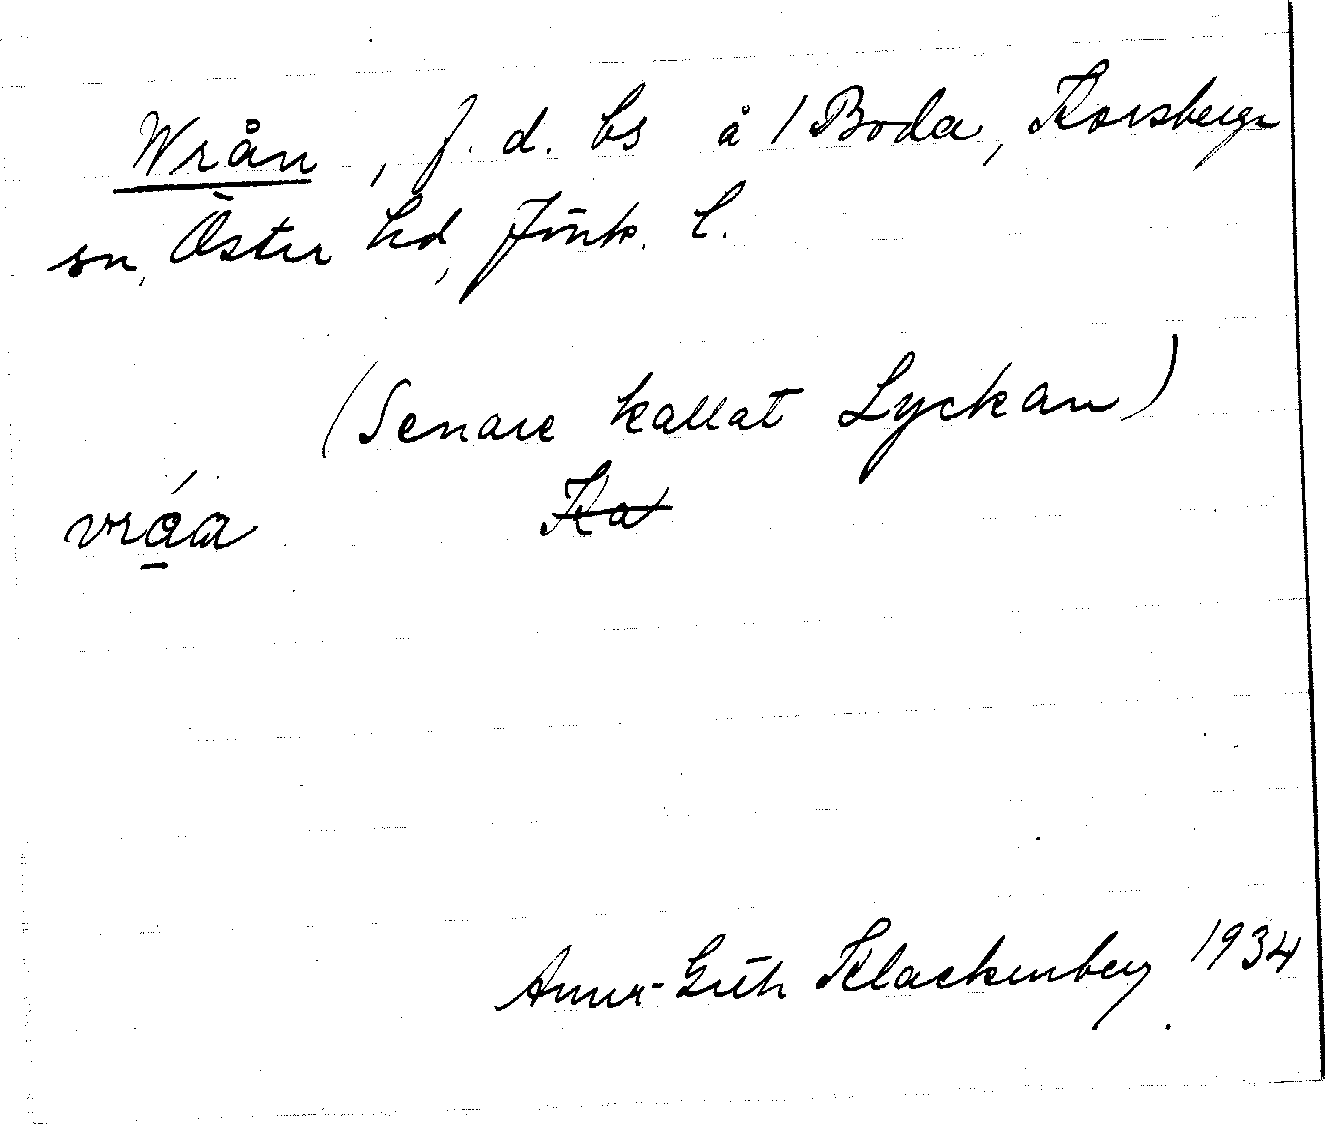 Wrån, f. d. bs å 1 Boda, Korsberga
sn, Öster hd, Jönk. l.
(Senare kallat Lyckan)
vråa Ka
Anna-Greth Klackenberg 1934